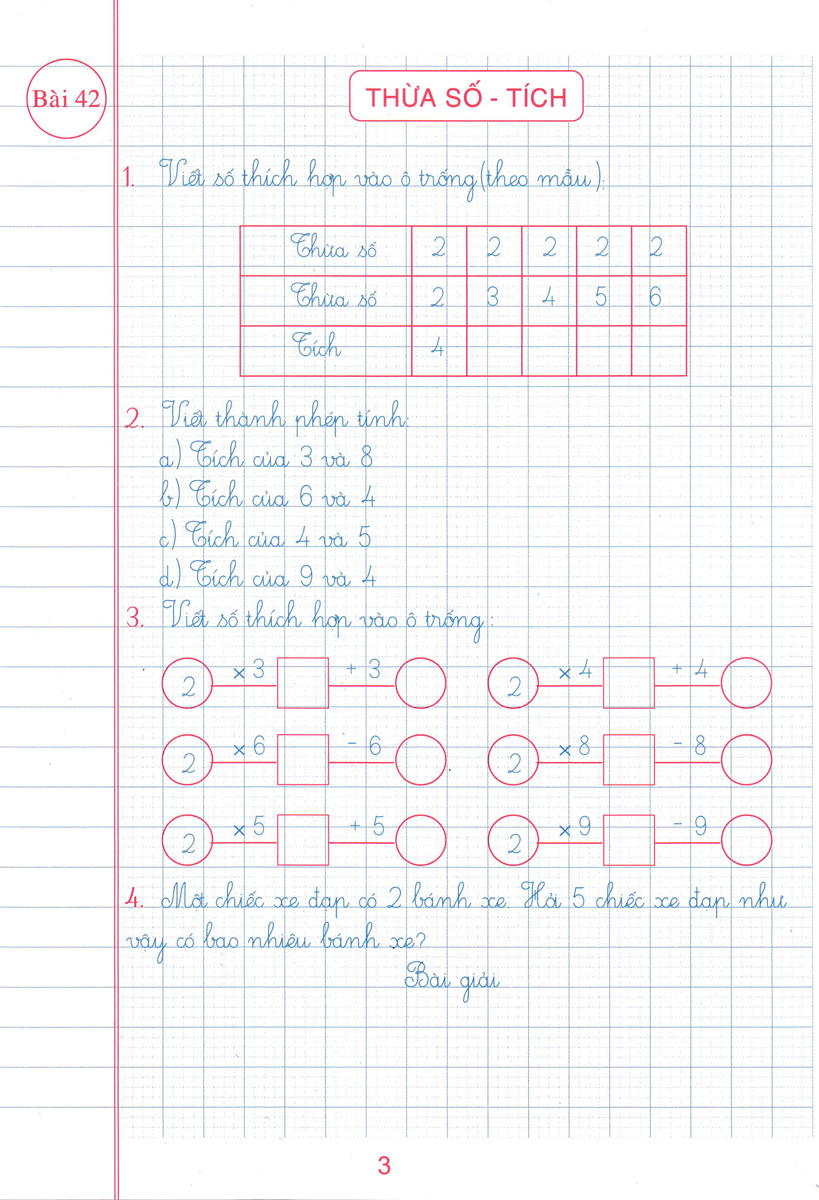 Bài 42
THỪA SỐ - TÍCH
1. Viết số thích hợp vào ô trống (theo mẫu):
Thừa số 2 2 2 2 2
Thừa số 2 3 4 5 6
Tích 4
2. Viết thành phép tính:
a) Tích của 3 và 8
b) Tích của 6 và 4
c) Tích của 4 và 5
d) Tích của 9 và 4
3. Viết số thích hợp vào ô trống:
2 × 3 + 3 2 × 4 + 4
2 × 6 - 6 2 × 8 - 8
2 × 5 + 5 2 × 9 - 9
4. Một chiếc xe đạp có 2 bánh xe. Hỏi 5 chiếc xe đạp như
vậy có bao nhiêu bánh xe?
Bài giải
3